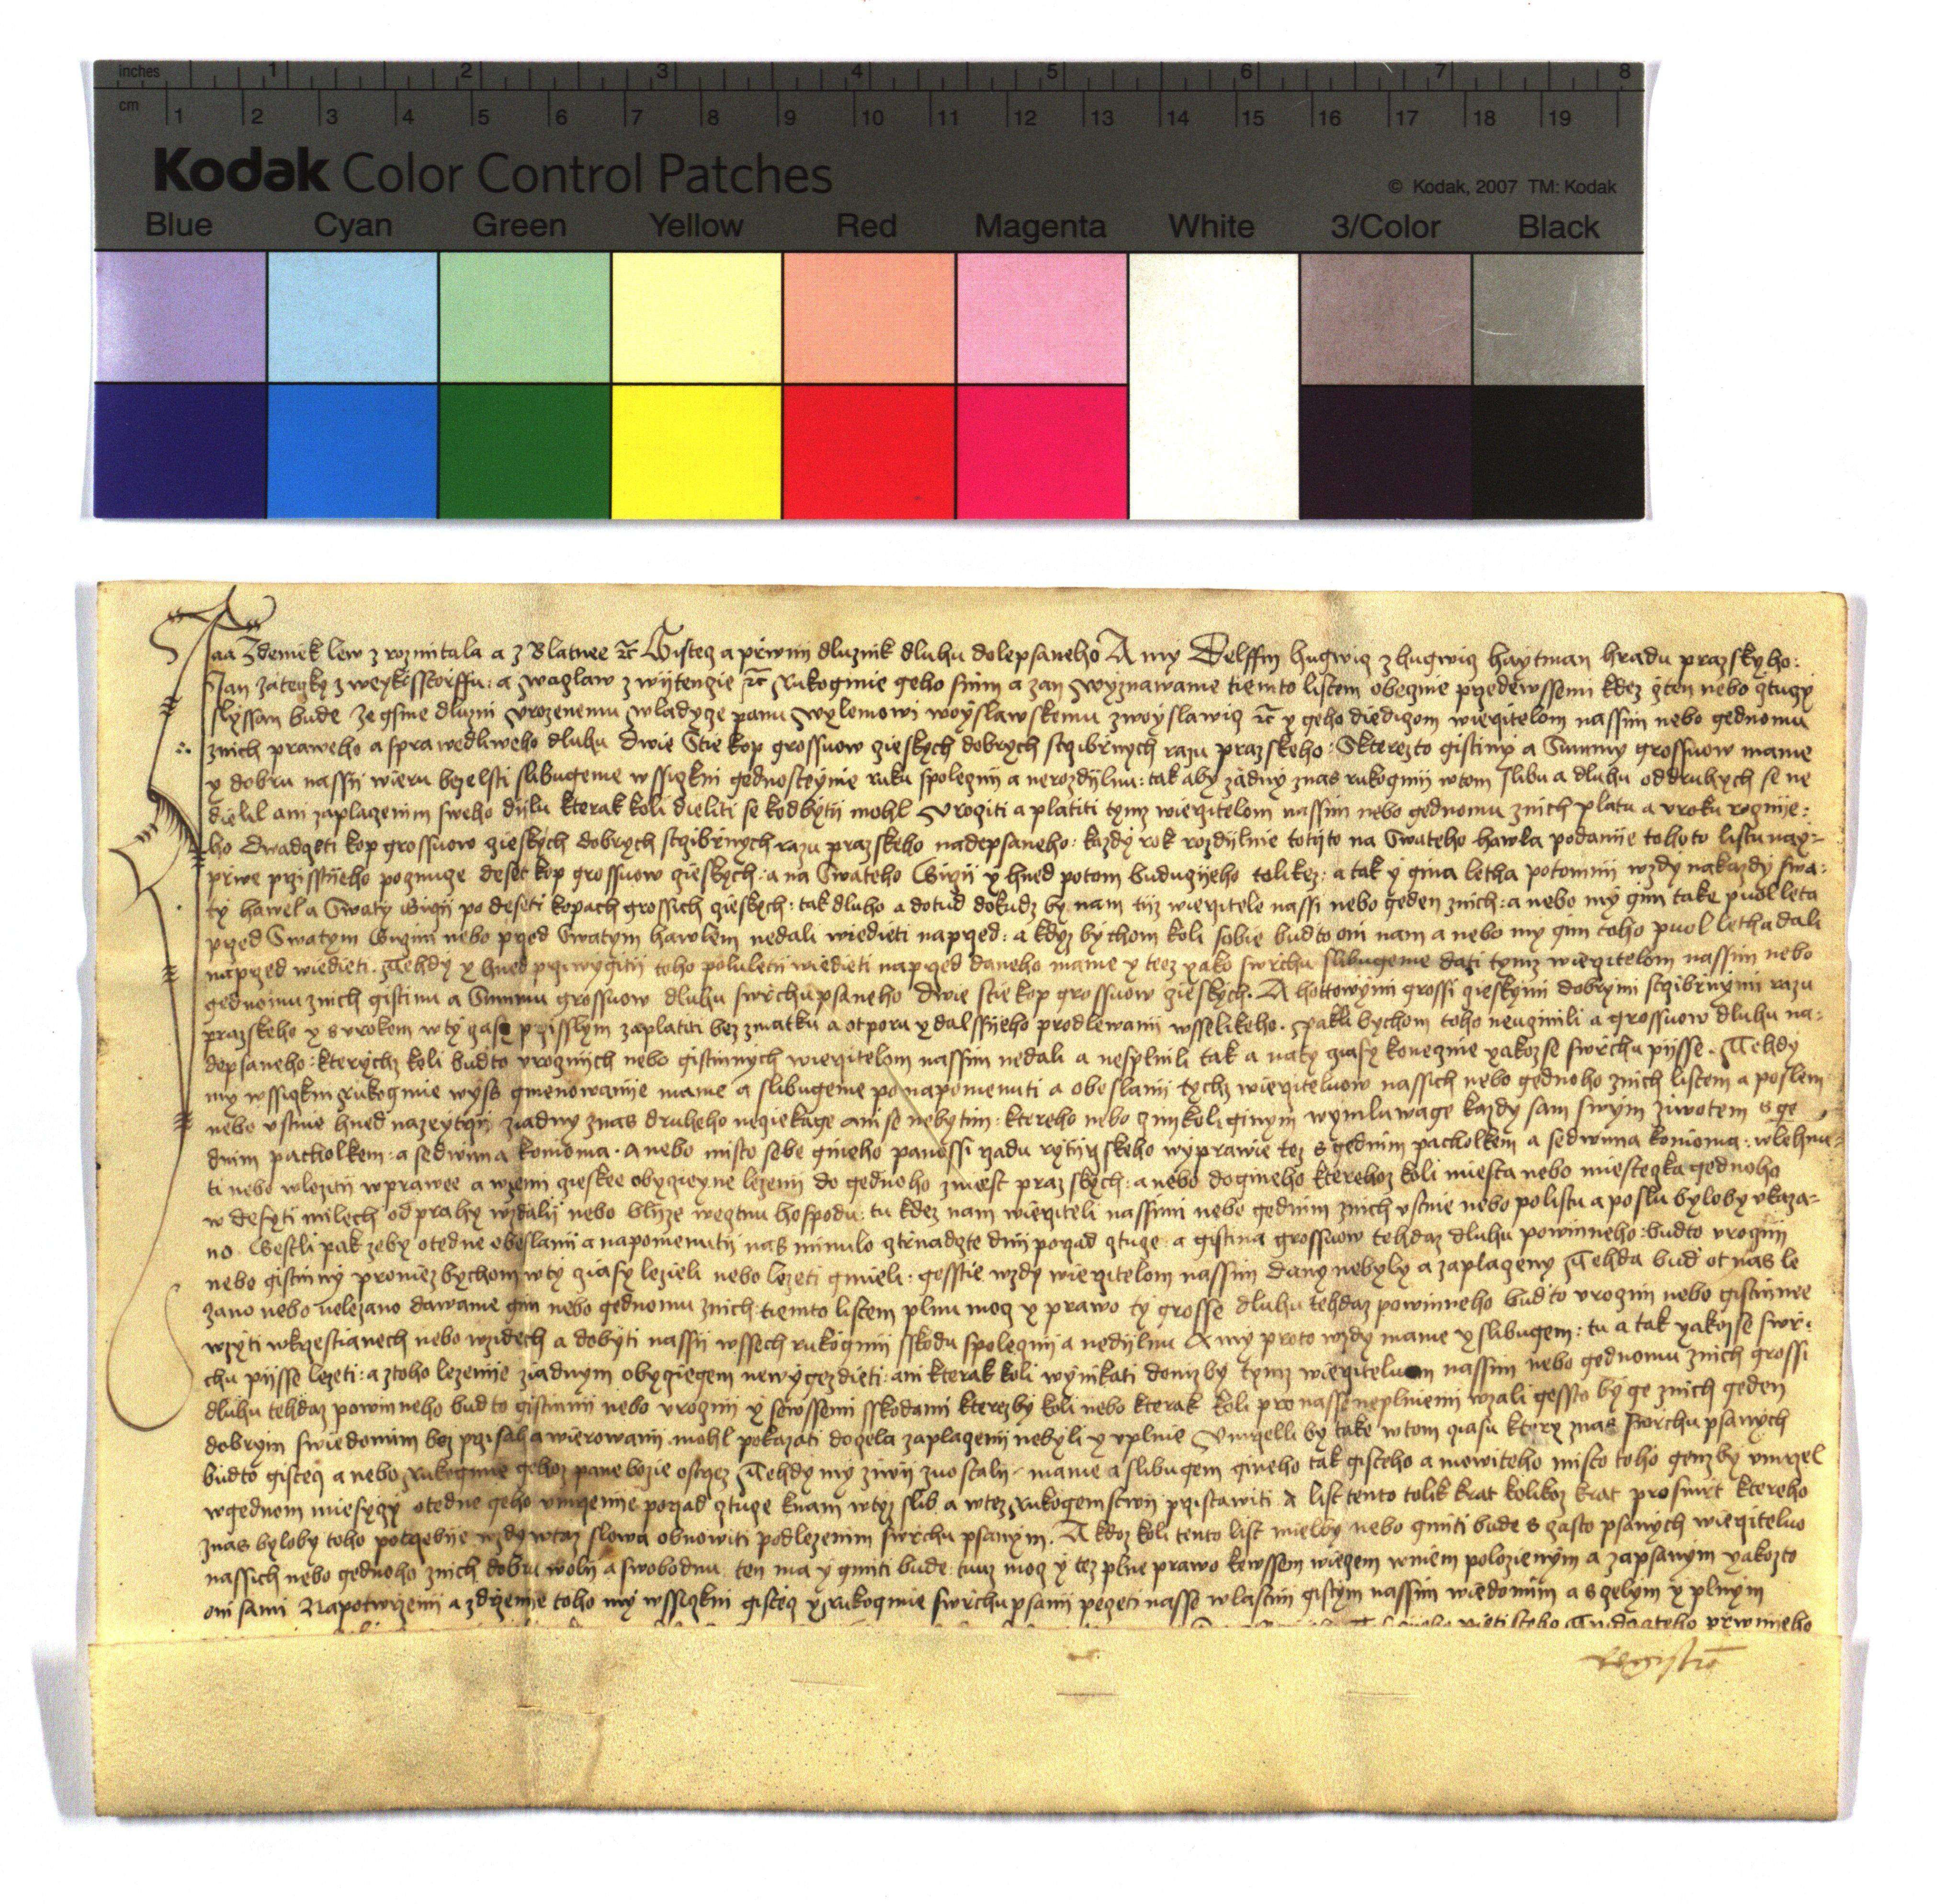 inches 1 2 3 4 5 6 7 8
cm 1 2 3 4 5 6 7 8 9 10 11 12 13 14 15 16 17 18 19
Kodak Color Control Patches
© Kodak, 2007 TM: Kodak
Blue Cyan Green Yellow Red Magenta White 3/Color Black
Jaa Zdeniek lew z rozmitala a z Blatnee Gistecz a prwnij dluznik dluhu dolepsaneho A my Delffin hugwicz z hugwicz haytman hradu prazskyho:
Jan zateczky z weykersstorffu: a waczlaw z wijtenczie Rukogmie geho s nim a zan wyznawame tiemto listem obecznie przedewssemi kdez gten nebo cztucz
slyssan bude ze gsme dluzni vrozenemu wladycze panu wylemowi woyslawskemu z woyslawicz y geho diediczom wierzitelom nassim nebo gednomu
z nich praweho a sprawedliweho dluhu dwie Stie kop grossuow czieskych dobrych strzibrnych razu prazskeho: Skterezto gistiny a Summy grossuow mame
y dobru nassij wieru bezelsti slibugeme wssiczkni gednosteynie ruku spoleczni a nerozdijlnu: tak aby zadny z nas rukogmij w tom slibu a dluhu od druhych se ne
dielil ani zaplaczenim sweho dijlu kterak koli dieliti se kod bytij mohl Vrocziti a platiti tymz wierzitelom nassim nebo gednomu z nich platu a vroku rocznije:
ho dwadczeti kop grossuow czieskych dobrych strzibrnych razu prazskeho nadepsaneho: kazdy rok rozdijlnie totizto na Swateho hawla podanije tohoto listu nay=
prwe przisstijeho poczmucze deset kop grossuow czieskych: a na Swateho Girzij y hned potom buduczijeho tolikez: a tak y gina letha potomnij wzdy na kazdy swa:
ty hawel a Swaty Girzij po deseti kopach grossich czieskych: tak dluho a dotud dokudz by nam tijz wierzitele nassi nebo geden z nich: a nebo my gim take puol leta
przed Swatym Girzim nebo przed Swatym hawlem nedali wiedieti naprzed: a kdyz bychom koli sobie budto oni nam a nebo my gim toho puol letha dali
naprzed wiedieti. Tehdy y hned przi wygitij toho poluletij wiedieti naprzed daneho mame y teez yako swrchu slibugeme dati tymz wierzitelom nassim nebo
gednomu z nich gistinu a Summu grossuow dluhu swrchupsaneho dwie stie kop grossuow czieskych. A hottowymi grossi czieskymi dobrymi strzibrnymi razu
prazskeho y s vrokem w ty czase przisslym zaplatiti bez zmatku a otporu y dalssijeho prodlewanij wsselikeho. Pakli bychom toho neuczinili a grossuow dluhu na=
depsaneho: kterychz koli budto vrocznich nebo gistinnych wierzitelom nassim nedali a nesplnili tak a na ty cziasy konecznie yakoz se swrchu pijsse. Tehdy
my wssiczkni Rukogmie wyss gmenowanije mame a slibugeme po napomenuti a obeslanij tychz wierziteluow nassich nebo gednoho z nich listem a poslem
nebo vstnie hned nazeytrzij ziadny z nas druheho neczekage ani se nebytim: ktereho nebo czimkoli ginym wymluwage kazdy sam swym ziwotem s ge
dnim pacholkem: a se dwiema konioma. a nebo misto sebe gineho panossi rzadu rytirzskeho wyprawie tez s gednim pacholkem a se dwiema konioma: wlehnu=
ti nebo wlozitij w prawee a w zemi czieskee obyczieyne lezenij do gednoho z miest prazskych: a nebo do gineho kterehoz koli miesta nebo miesteczka gednoho
w desyti milech od prahy wzdalij nebo blijze w ctnu hospodu: tu kdez nam wierziteli nassimi nebo gednim z nich vstnie nebo po listu a poslu byloby vkaza=
no. Gestli pak zeby ote dne obeslanij a napomenutij nas minulo cztrnadczte dnij porzad cztucze: a gistina grossuow tehdaz dluhu powinneho: budto vrocznij
nebo gistinny proniez bychom w ty cziasy lezieli nebo lezeti gmieli: gesstie wzdy wierzitelom nassim dany nebyly a zaplaczeny Tehda bud ot nas le
zano nebo nelezano dawame gim nebo gednomu z nich: tiemto listem plnu mocz y prawo ty grosse dluhu tehdaz powinneho budto vrocznij nebo gistinnee
wzyti w krzestianech nebo w zidech a dobyti nassij wssech rukogmij sskodu spolecznij a nedijlnu A my proto wzdy mame y slibugem: tu a tak yakoz se swr:
chu pijsse lezeti: a z toho lezenije ziadnym obyczegem newygezdieti: ani kterak koli wynikati doniz by tymz wierziteluom nassim nebo gednomu z nich grossi
dluhu tehdaz powinneho budto gistinnij nebo vrocznij y se wssemi sskodami kterez by koli nebo kterak koli pro nasse neplnienij wzali gessto by ge z nich geden
dobrym swiedomim bez przisah a wierowanij mohl pokazati docela zaplaczenij nebyli y vplnie Vmrzelli by take w tom czasu ktery z nas Swrchu psanych
budto gistecz a nebo Rukogmie gehoz pane bozie ostrzez Tehdy my ziwij zuostalij mame a slibugem gineho tak gisteho a mowiteho misto toho genz by vmrzel
w gednom miesyczy ote dne geho vmrzenije porzad cztucze k nam w tyz slib a w tez Rukogemstwij przistawiti A list tento tolik krat kolikoz krat pro smrt ktereho
z nas byloby toho potrzebije wzdy w taz slowa obnowiti pod lezenim swrchu psanym. A kdoz koli tento list mielby nebo gmiti bude s czasto psanych wierziteluo
nassich nebo gednoho z nich dobru wolij a swobodnu: ten ma y gmiti bude: tuuz mocz y tez plne prawo ke wssem wieczem w niem polozienym a zapsanym yakozto
oni sami Na potwrzenij a zdrzenije toho my wssiczkni gistecz y Rukogmie swrchupsanij peczeti nasse wlastnij gistym nassim wiedomim a s czelym y plnym
prwnijeho
registro